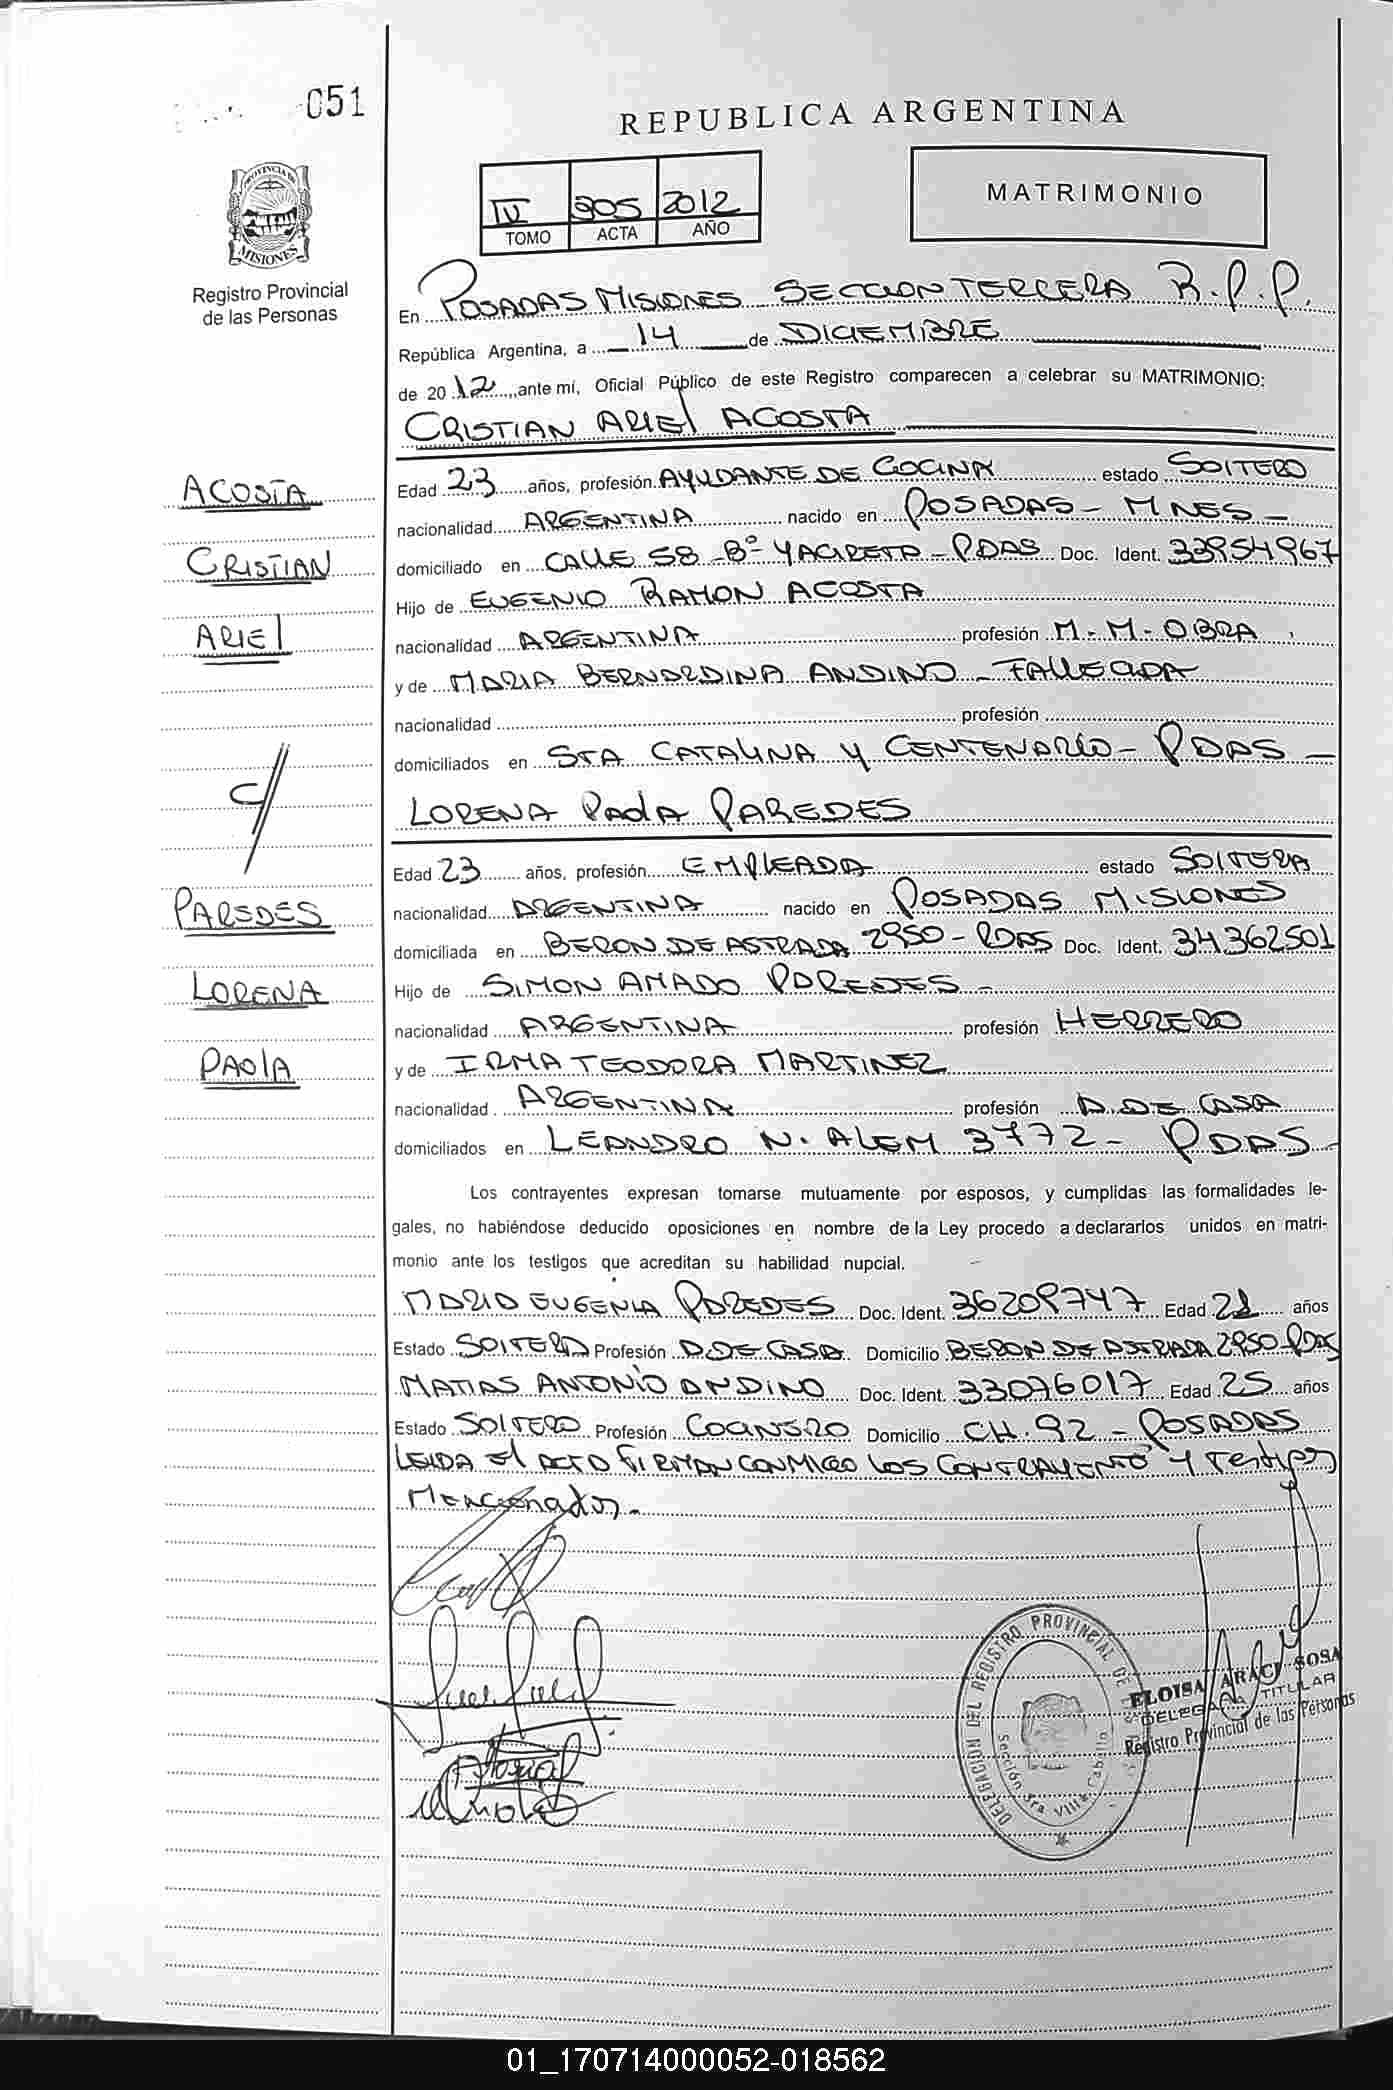 051
REPUBLICA ARGENTINA
PROVINCIA DE
MISIONES
Registro Provincial
de las Personas
IV 905 2012
TOMO ACTA AÑO
MATRIMONIO
En POSADAS MISIONES SECCION TERCERA R.P.P.
República Argentina, a 14 de DICIEMBRE
de 2012 ante mí, Oficial Público de este Registro comparecen a celebrar su MATRIMONIO:
CRISTIAN ARIEL ACOSTA
ACOSTA
CRISTIAN
ARIEL
C/
PAREDES
LORENA
PAOLA
Edad 23 años, profesión AYUDANTE DE COCINA estado SOLTERO
nacionalidad ARGENTINA nacido en POSADAS - MNES -
domiciliado en CALLE 58 - Bº YACIRETA - PDAS Doc. Ident. 33954967
Hijo de EUGENIO RAMON ACOSTA
nacionalidad ARGENTINA profesión M.M.OBRA
y de MARIA BERNARDINA ANDINO - FALLECIDA
nacionalidad profesión
domiciliados en STA CATALINA Y CENTENARIO - PDAS -
LORENA PAOLA PAREDES
Edad 23 años, profesión EMPLEADA estado SOLTERA
nacionalidad ARGENTINA nacido en POSADAS MISIONES
domiciliada en BERON DE ASTRADA 2950 - PDAS Doc. Ident. 34362501
Hijo de SIMON AMADO PAREDES -
nacionalidad ARGENTINA profesión HERRERO
y de IRMA TEODORA MARTINEZ
nacionalidad ARGENTINA profesión A.DE CASA
domiciliados en LEANDRO N. ALEM 3772 - PDAS -
Los contrayentes expresan tomarse mutuamente por esposos, y cumplidas las formalidades le-
gales, no habiéndose deducido oposiciones en nombre de la Ley procedo a declararlos unidos en matri-
monio ante los testigos que acreditan su habilidad nupcial.
MARIA EUGENIA PAREDES Doc. Ident. 36209747 Edad 21 años
Estado SOLTERA Profesión A.DE CASA Domicilio BERON DE ASTRADA 2950 - PDAS
MATIAS ANTONIO ANDINO Doc. Ident. 33076017 Edad 25 años
Estado SOLTERO Profesión COCINERO Domicilio CH. 92 - POSADAS
LEIDA El ACTO FIRMAN CONMIGO LOS CONTRAYENTE Y Testigos
Mencionados.-
DELEGACION DEL REGISTRO PROVINCIAL DE
Sección 3ra. Villa Cabello
ELOISA ARACI SOSA
DELEGADA TITULAR
Registro Provincial de las Personas
01_170714000052-018562